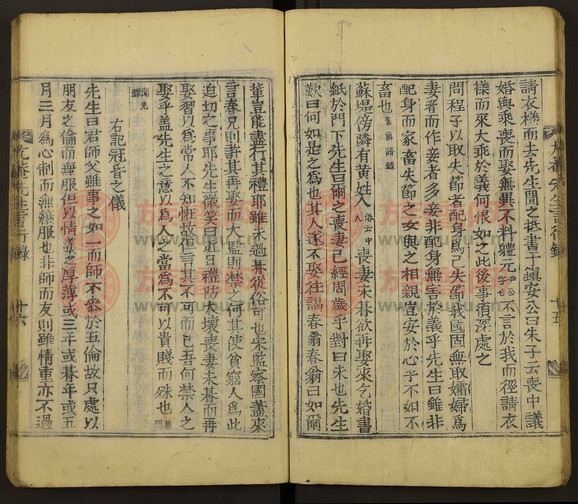 請衣樣而去先生聞之抵書于眞安公曰朱子云喪中議
婚與乘喪而娶無異不料軆元尹公字也不言於我而徑請衣
樣而來大乖於義何恨如之此後事須深處之
問程子以取失節者配身爲己失節我國固無取孀婦爲
妻者而作妾者多妾非配身無害於義乎先生曰雖非
配身而家畜失節之女與之相親豈安於心乎不如不
畜也
蘇堤傍隣有黃姓人喪妻未朞欲再娶來乞婚書
紙於門下先生曰爾之喪妻已經周歲乎對曰未也先生
歎曰何如是之爲也其人遂不娶往謁春翁春翁曰如爾
輩豈能盡行其禮耶雖未過朞從俗可也宋監察國藎來
言春兄則許其再娶而大監則禁之何其使貧窮人爲此
迫切之事耶先生微笑曰近日禮防大壞喪妻未朞而再
娶習以爲常人不知怪故但言其不可而已吾何禁人之
娶乎盖先生之意以爲人之當爲不可以貴賤而殊也
右記冠昏之儀
先生曰君師父雖事之如一而師不參於五倫故只處以
朋友之倫而無服但以情義之厚薄或三年或朞年或五
月三月爲心制而無緦服也非師而友則雖情重亦不過
尤菴先生言行錄
十五
十六